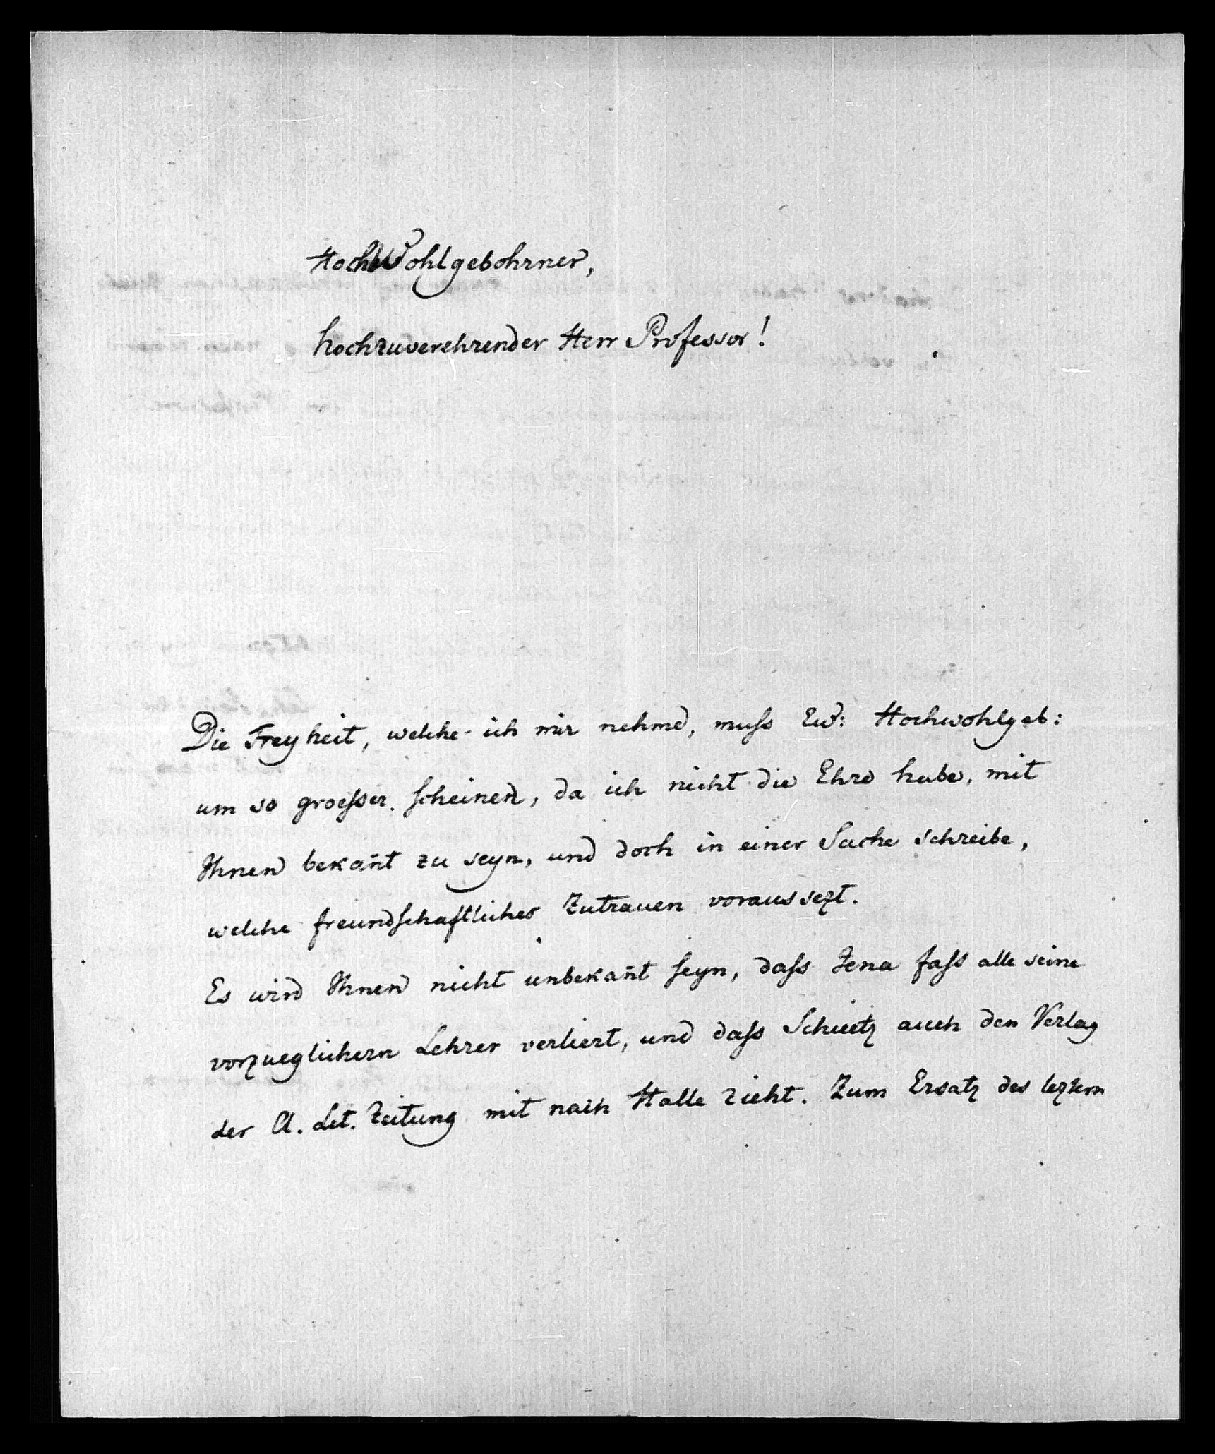 HochWohlgebohrner,
hochzuverehrender Herr Professor!
Die Freyheit, welche ich mir nehme, muss Ew: Hochwohlgeb:
um so groesser scheinen, da ich nicht die Ehre habe, mit
Ihnen bekan̄t zu seyn, und doch in einer Sache schreibe,
welche freundschaftliches Zutrauen voraussezt.
Es wird Ihnen nicht unbekan̄t seyn, dass Jena fast alle seine
vorzueglichern Lehrer verliert, und dass Schuetz auch den Verlag
der A. Lit. Zeitung mit nach Halle zieht. Zum Ersatz des leztern